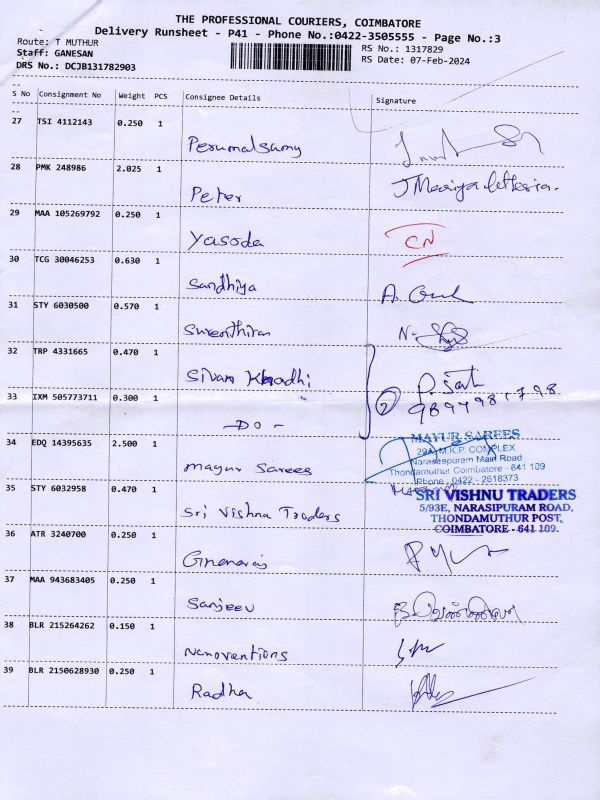 THE PROFESSIONAL COURIERS, COIMBATORE
Delivery Runsheet - P41 - Phone No.:0422-3505555 - Page No.:3
Route: T MUTHUR
RS No.: 1317829
Staff: GANESAN
RS Date: 07-Feb-2024
DRS No.: DCJB131782903
S No Consignment No Weight PCS Consignee Details Signature
27 TSI 4112143 0.250 1 Perumalsamy
28 PMK 248986 2.025 1 Peter J
29 MAA 105269792 0.250 1 Yasoda CN
30 TCG 30046253 0.630 1 Sandhiya A.
31 STY 6030500 0.570 1 Surenthiran N.
32 TRP 4331665 0.470 1 Sivan P.
33 IXM 505773711 0.300 1 -DO- 2 9894981798
34 EDQ 14395635 2.500 1 Mayur Sarees
MAYUR SAREES
29A, M.K.P. COMPLEX
Naraseepuram Main Road
Thondamuthur Coimbatore - 641 109
Phone : 0422 - 2618373
35 STY 6032958 0.470 1 Sri Vishnu Traders
SRI VISHNU TRADERS
5/93E, NARASIPURAM ROAD,
THONDAMUTHUR POST,
COIMBATORE - 641 109.
36 ATR 3240700 0.250 1
37 MAA 943683405 0.250 1 Sanjeev
38 BLR 215264262 0.150 1 Nanoventions
39 BLR 2150628930 0.250 1 Radha